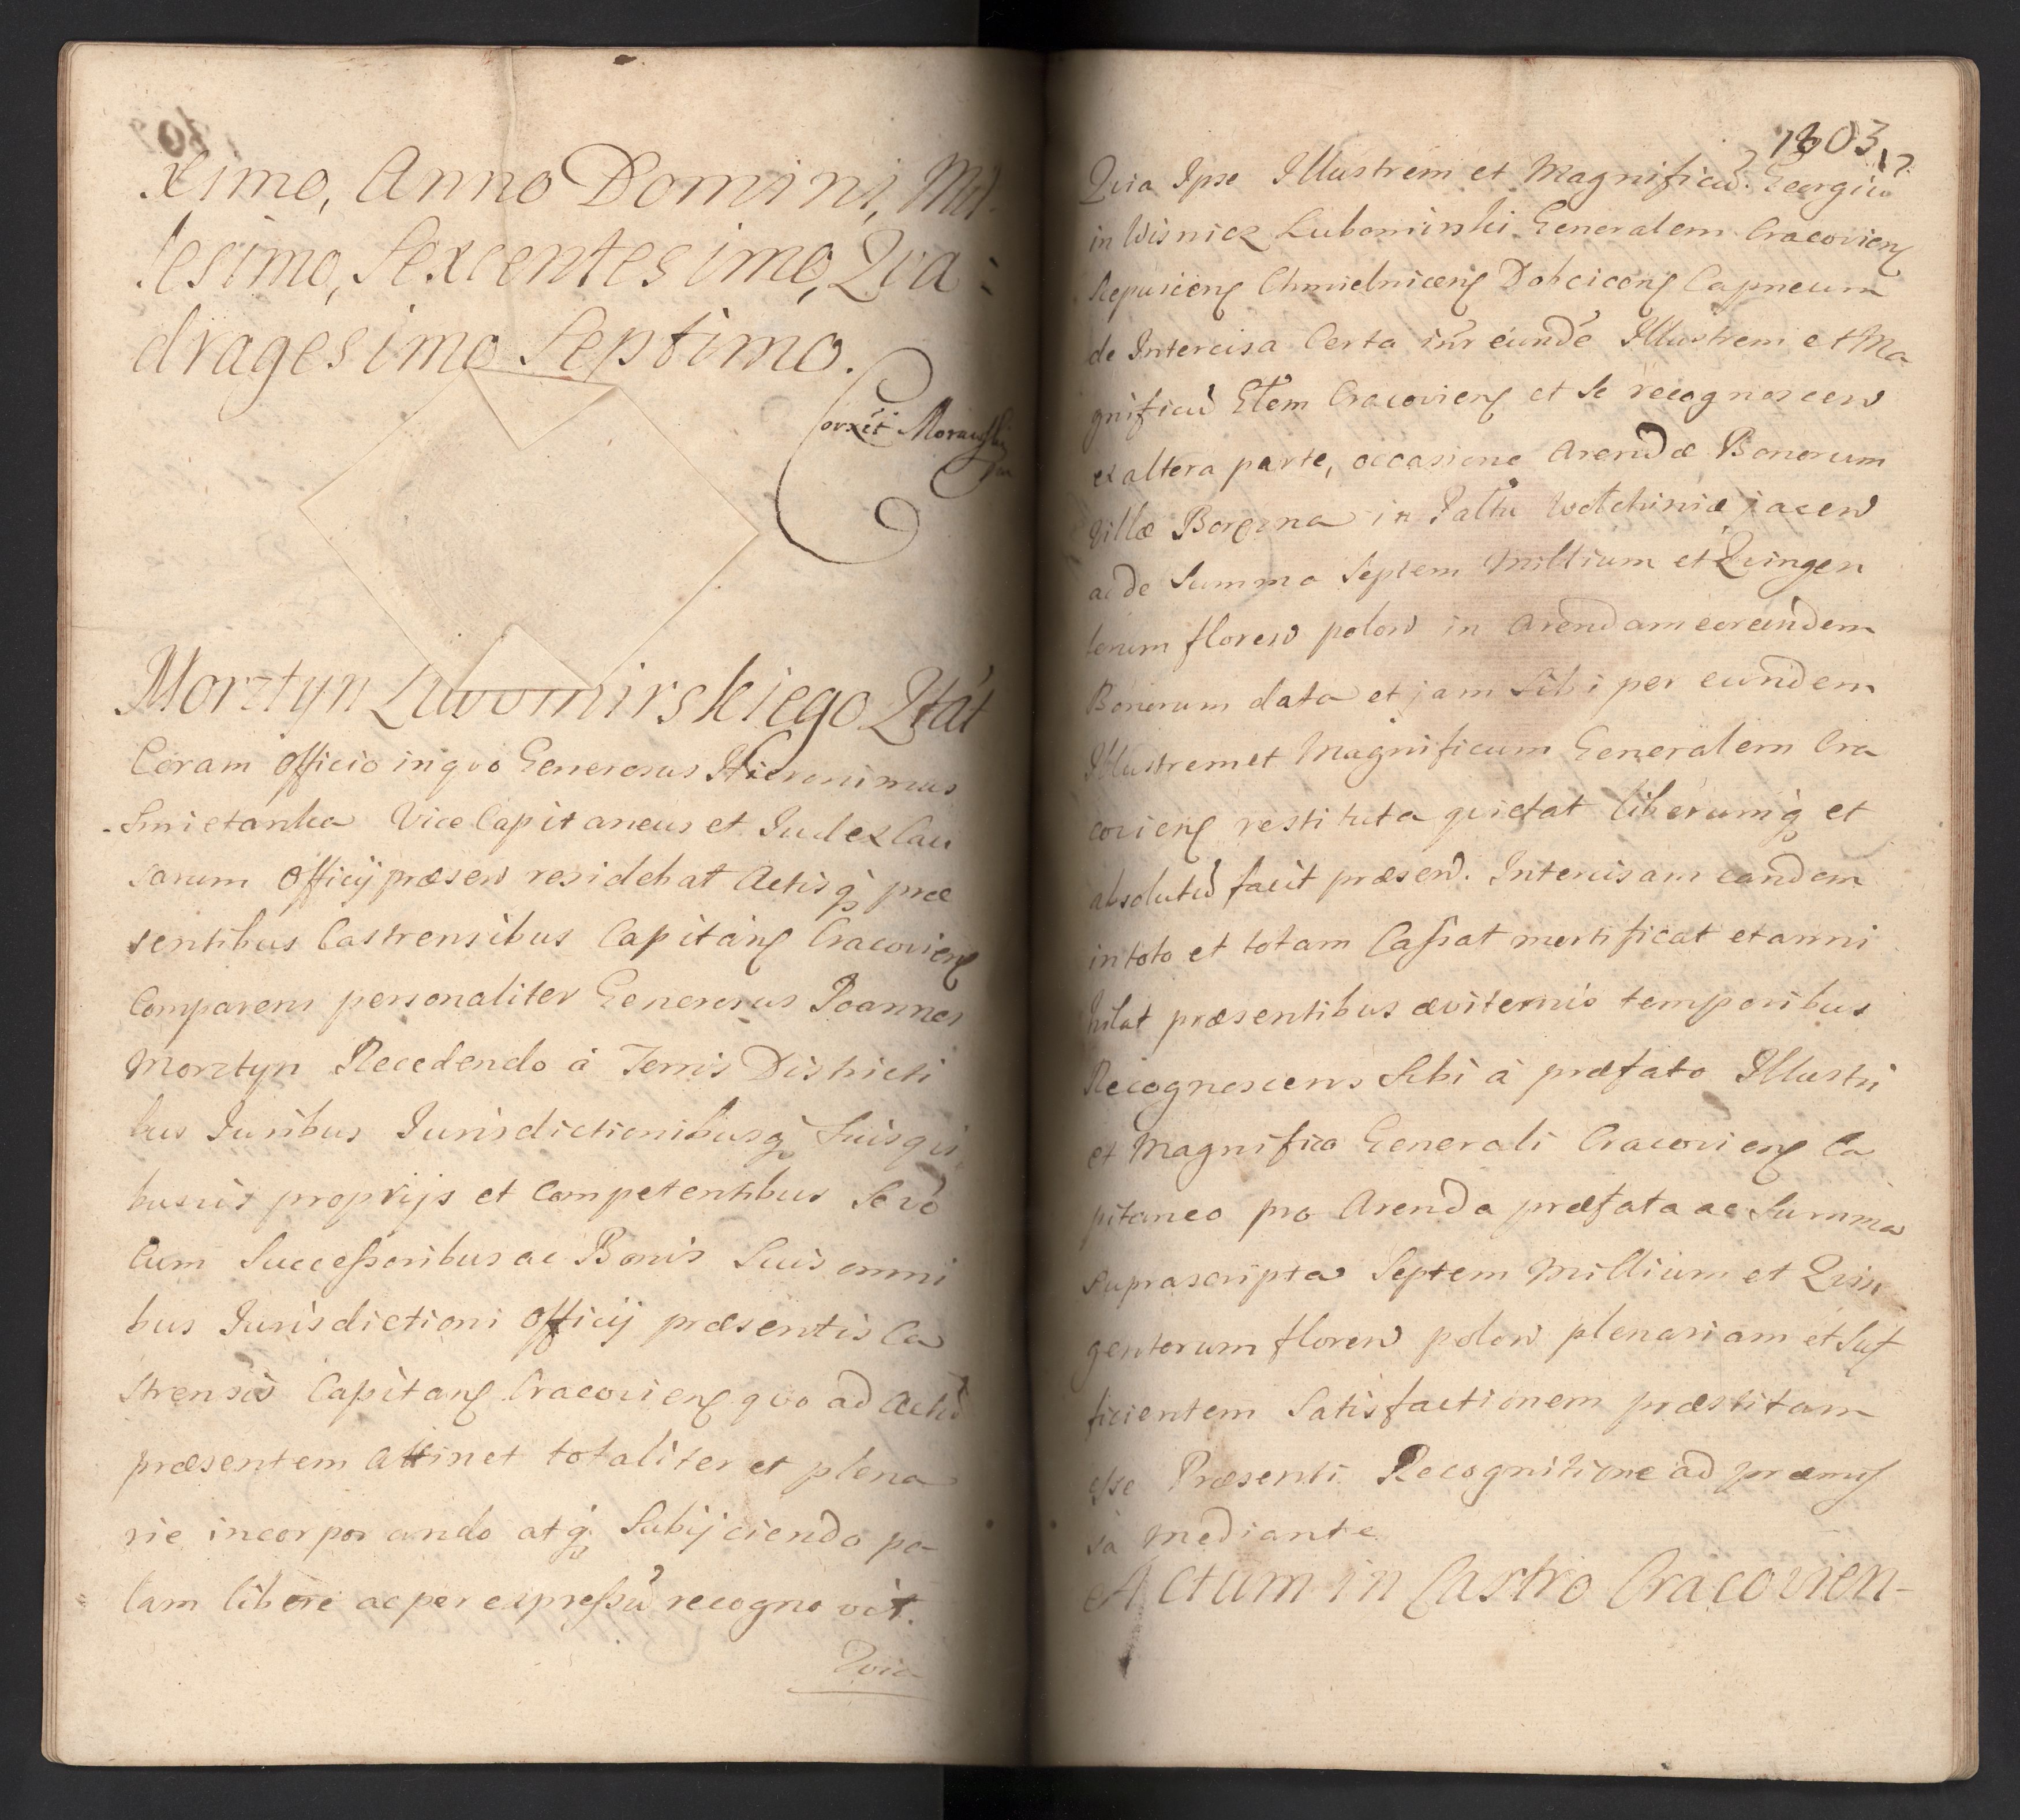 ximo, Anno Domini, Mil-
lesimo, Sexcentesimo, Qva=
dragesimo Septimo.
Corrxit Morawski
Morztyn Lubomirskiego Qtat
Coram Officio inqvo Generosus Hieronimus
Smietanka Vice Capitaneus et Judex Cau
sarum Officij præsens residebat Actisq præ
sentibus Castrensibus Capitan Cracovien
Comparens personaliter Generosus Joannes
Morztyn Recedendo à Terris Districti
bus Juribus Jurisdictionibusq Suisqui
busvis proprijs et Competentibus Sevò
Cum Successoribus ac Bonis Suis omni
bus Jurisdictioni Officij præsentis Ca
strensis Capitan Cracovien qvo ad Actu
præsentem Attinet totaliter et plena
rie incorporando atq Subijciendo pa-
lam liberè ac per expressu recognovit.
Qvia
1803
Qvia Ipse Illustrem et Magnificu Georgiu
in Wisnicz Lubomirski Generalem Cracovien
Repuscien Chmielnicen Dobcicen Capneum
de Intercisa Certa intr eunde Illustrem et Ma
gnificu Glem Cracovien et Se recognoscen
ex altera parte, occasione Arendæ Bonorum
Villæ in Palatu Wolchiniæ jacen
ac de Summa Septem Millium et Qvingen
torum floren polon in Arendam eorundem
Bonorum data et jam Sibi per eundem
Illustrem et Magnificum Generalem Cra
covien restituta qvietat liberumq et
absolutu facit præsen. Intercisam eandem
in toto et totam Cassat mortificat et anni
hilat præsentibus æviternis temporibus
Recognoscens Sibi à præfato Illustri
et Magnifico Generali Cracovien Ca
pitaneo pro Arenda præfata ac Summa
Suprascripta Septem Millium et Qvin
gentorum floren polon plenariam et Suf
ficientem Satisfactionem præstitam
esse Præsenti Recognitione ad præmis
sa mediante
Actum in Castro Cracovien-